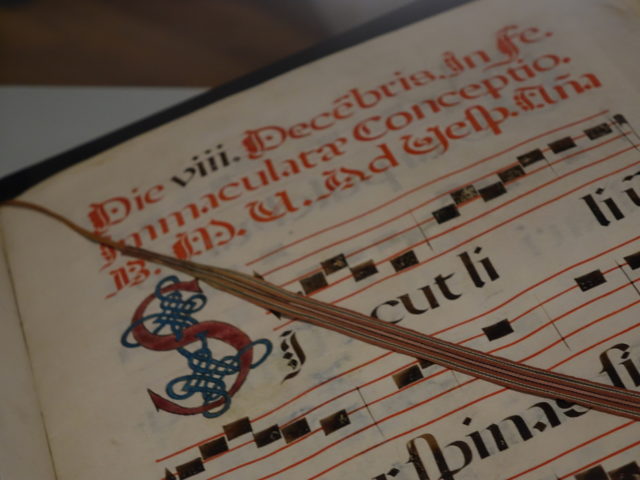 Die viii. Decẽbris. In Fe.
Immaculatæ Conceptio.
B. M. V. Ad Vesp. Aña
SIcut li li
spinas